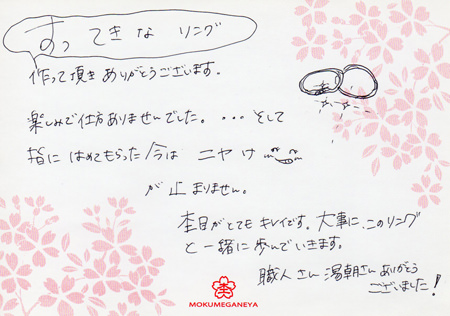 すってきな リング
作って頂き ありがとうございます。
楽しみで仕方ありませんでした。・・・そして
指に はめてもらった今は ニヤけ
が止まりません。
杢目がとても キレイです。大事に、このリング
と一緒に歩んでいきます。
職人さん 湯朝さん ありがとう
ございました!
MOKUMEGANEYA